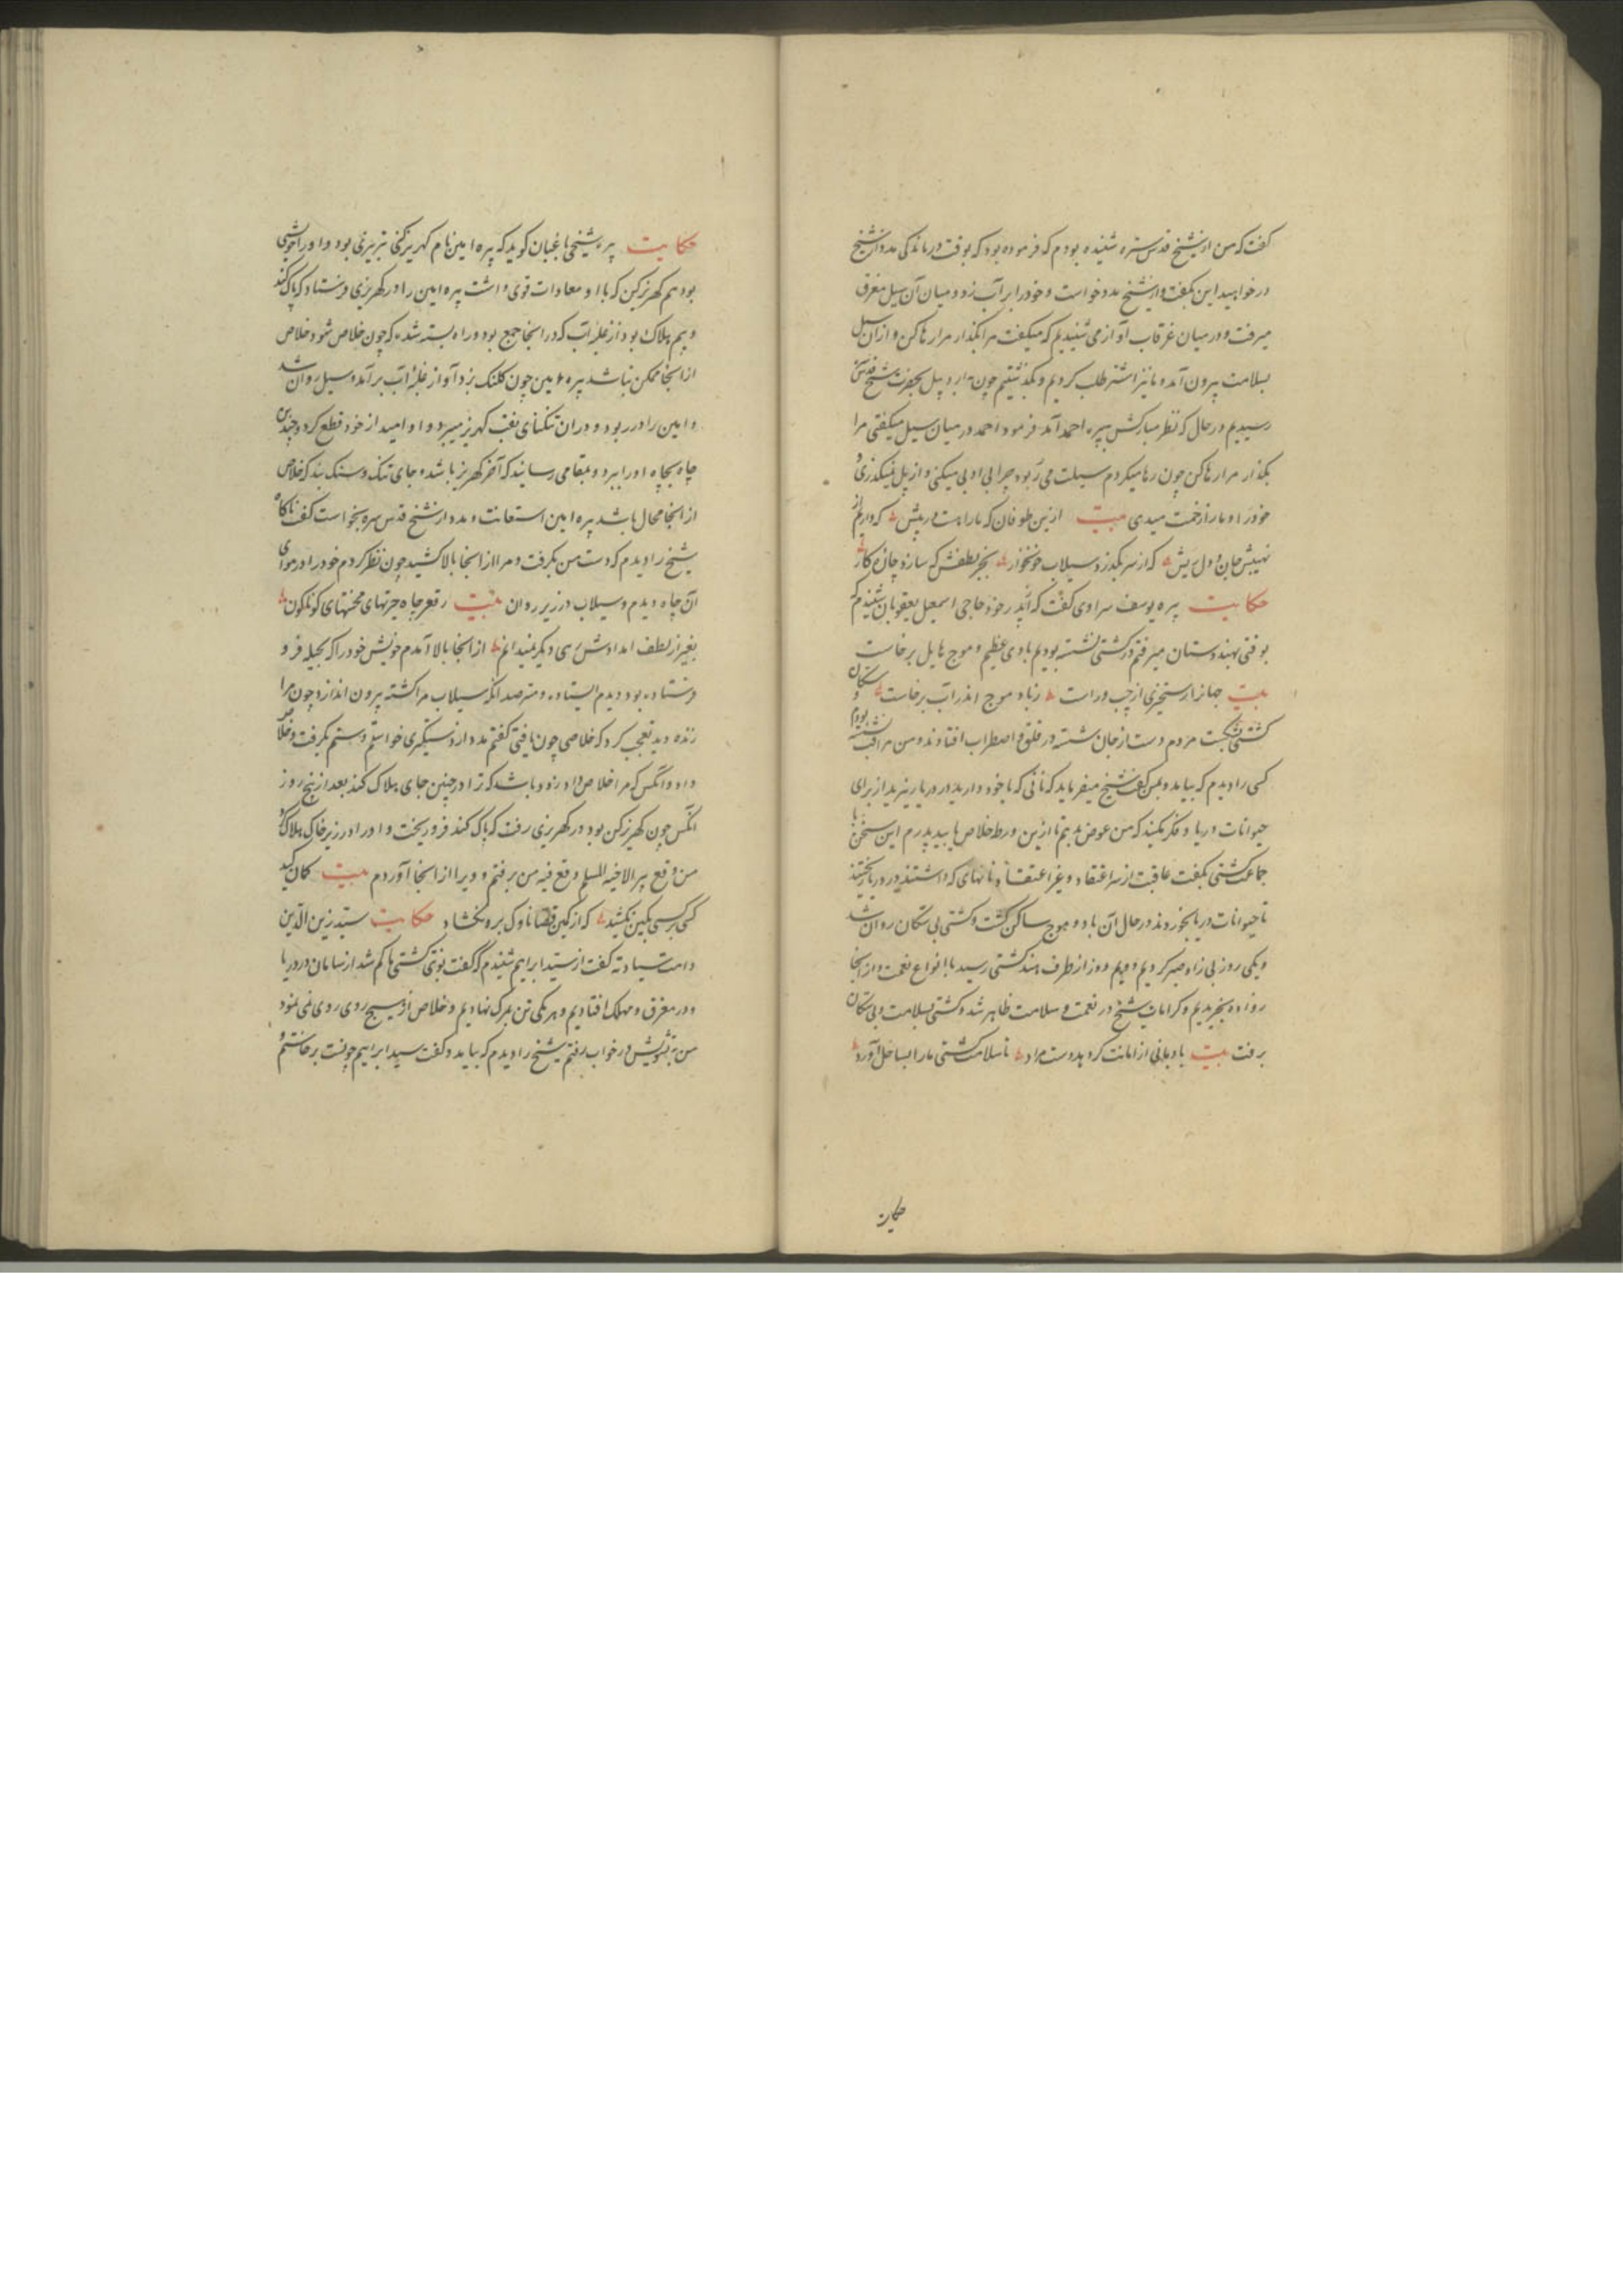 گفت که من از شیخ قدس سره شنیده بودم که فرموده بود که بوقت درماندگی مدد از شیخ
در خواهید این بگفت و از شیخ مدد خواست و خود را بر آب زد و میان آن سیل مغرق
میرفت و در میان غرقاب آواز می شنیدیم که میگفت مرا بگذار مرا رها کن و از آن سیل
بسلامت بیرون آمد و ما نیز اشتر طلب کردیم و بگذشتیم چون باردبیل بحضرت شیخ قدس سره
رسیدیم در حال که نظر مبارکش بپیره احمد آمد فرمود احمد در میان سیل میگفتی مرا
بگذار مرا رها کن چون رها میکردم سیلت می ربود چرا بی ادبی میکنی و از پل نمیگذری و
خود را و ما را زحمت میدی بیت ازین طوفان که ما راست در پیش که داریم از
نهیبش جان و دل ریش که از سر بگذرد سیلاب خونخوار بجز لطفش که سازد چاره کار
حکایت پیره یوسف سراوی گفت که از پدر خود حاجی اسمعیل یعقوبان شنیدم که
بوقتی بهندوستان میرفتم در کشتی نشسته بودیم بادی عظیم و موج هایل برخاست
بیت جهانرا رستخیزی از چپ و راست ز باد موج اندر آب برخاست سکان و
کشتی بشکست مردم دست از جان شسته در قلق و اضطراب افتادند و من مراقب نشسته بودم
کسی را دیدم که بیامد و بمن گفت شیخ میفرماید که نانی که با خود دارید در دریا ریزید از برای
حیوانات دریا و فکر مکنید که من عوض بدهم تا ازین ورطه خلاص یابید پدرم این سخن با
جماعت کشتی بگفت عاقبت از سر اعتقاد و غیر اعتقاد نانهای که داشتند در دریا ریختند
تا حیوانات دریا بخوردند در حال آن باد و موج ساکن گشت و کشتی بی سکان روان شد
و یکی روز بی زاد صبر کردیم دویم روز از طرف هند کشتی رسید با انواع نعمت و از آنجا
زواده بخریدیم و کرامات شیخ در نعمت و سلامت ظاهر شد و کشتی بسلامت و بی سکان
برفت بیت بادبانی از امانت کرد بدست مراد تا سلامت کشتی ما را بساحل آورد
حکایت
حکایت پیره شیخی باغبان گوید که پیره امین نام کهریزکنی تبریزی بود و او را خویشی
بود هم کهریزکن که با او معادات قوی داشت پیره امین را در کهریزی فرستاد که پاک کند
و بیم هلاک بود از غلبه آب که در آنجا جمع بود و راه بسته شده که چون خلاص شود خلاص
از آنجا ممکن نباشد پیره امین چون کلنک بزد آواز غلبه آب برآمد و سیل روان شد
و امین را در ربود و در آن تنکنای نقب کهریز میبرد و او امید از خود قطع کرد و چندین
چاه بچاه او را ببرد و بمقامی رسانید که آخر کهریز باشد و جای تنک و سنک بند که خلاص
از آنجا محال باشد پیره امین استعانت و مدد از شیخ قدس سره بخواست گفت ناکاه
شیخ را دیدم که دست من بگرفت و مرا از آنجا بالا کشید چون نظر کردم خود را در هوای
آن چاه دیدم و سیلاب در زیر روان بیت ز قعر چاه حیرتهای محنتهای کوناکون
بغیر از لطف امدادش کسی دیکر نمیدانم از آنجا بالا آمدم خویش خود را که بحیله فرو
فرستاده بود دیدم ایستاده و مترصد آنکه سیلاب مرا کشته بیرون اندازد چون مرا
زنده دید تعجب کرد که خلاصی چون یافتی گفتم مدد از دستگیری خواستم دستم بگرفت و خلاص
داد و آنکس که مرا خلاص داد زود باشد که ترا در چنین جای هلاک کند بعد از پنج روز
آنکس چون کهریزکن بود در کهریزی رفت که پاک کند فرو ریخت و او را در زیر خاک هلاک کرد
من وقع بیرا لاخیه المسلم وقع فیه من برفتم و ویرا از آنجا آوردم بیت کمان کید
کسی بر کسی بکین نکشید که از کمین قضا ناوک برو نکشاد حکایت سید زین الدین
دامت سیادته گفت از سید ابراهیم شنیدم که گفت نوبتی کشتی ما کم شد از سامان در دریا
و در مغرق و مهلک افتادیم و هر یکی تن بمرک نهادیم و خلاص از هیچ روی روی نمی نمود
من بتشویش در خواب رفتم شیخ را دیدم که بیامد و گفت سید ابراهیم چونست برخاستم و